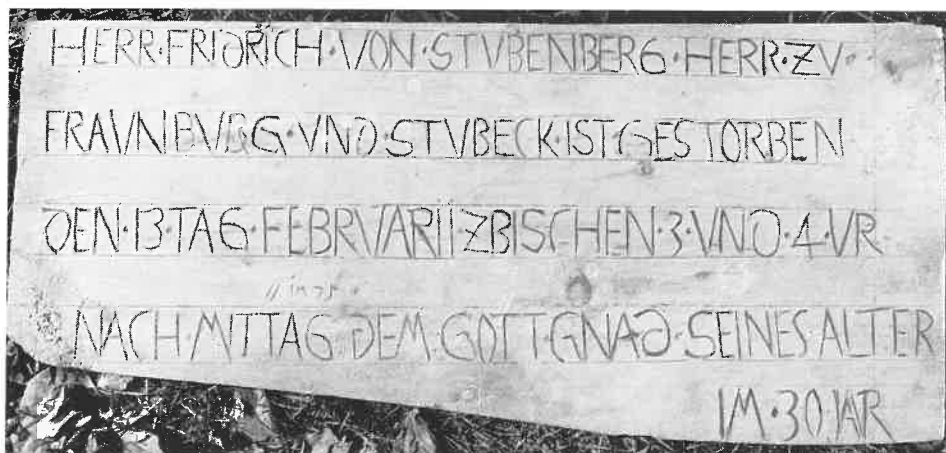 HERR·FRIDRICH·VON·STVBENBERG·HERR·ZV·
FRAVNBVRG·VND·STVBECK·IST·GESTORBEN
DEN·13·TAG·FEBRVARII·ZBISCHEN·3·VND·4·VR
NACH·MITTAG·DEM·GOTT·GNAD·SEINES ALTER
IM·30·IAR